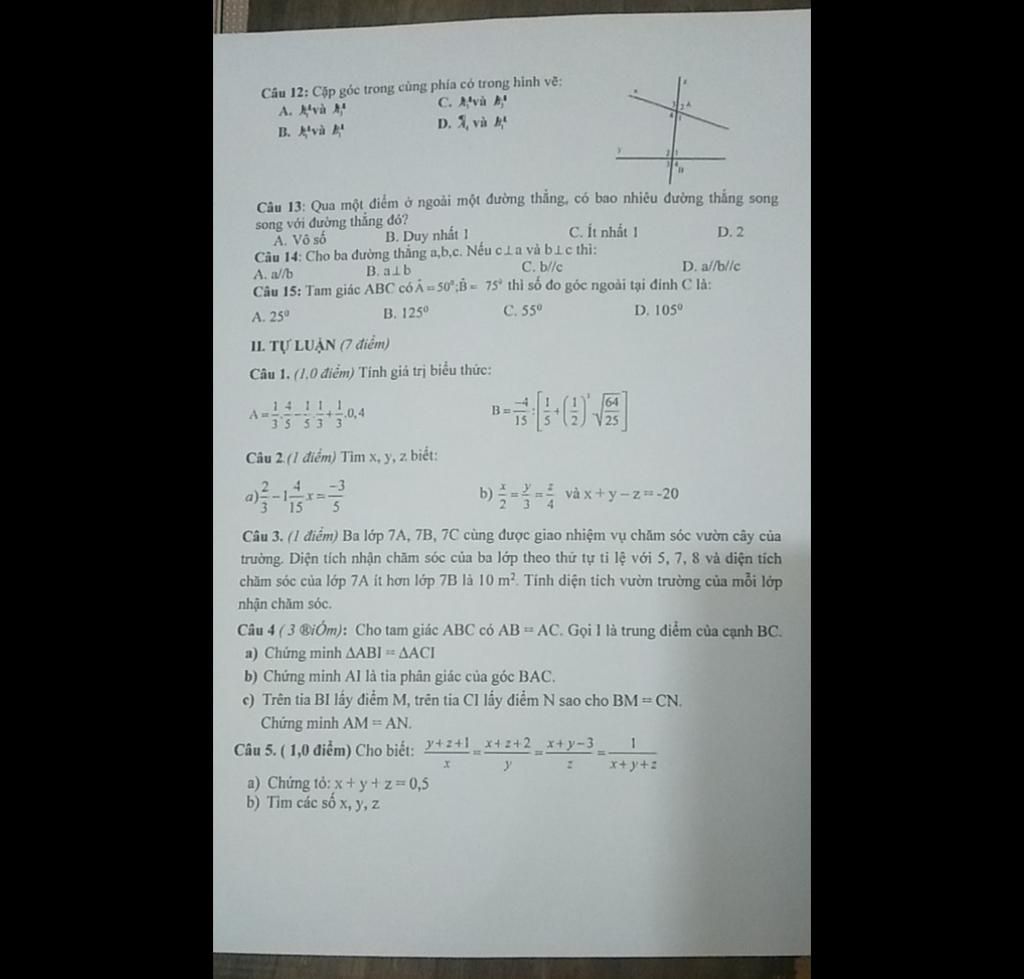 Câu 12: Cặp góc trong cùng phía có trong hình vẽ:
A. và
C. và
B. và
D. và
x
z
3 2 A
4 1
y
2 1
3 4
B
Câu 13: Qua một điểm ở ngoài một đường thẳng, có bao nhiêu đường thẳng song
song với đường thẳng đó?
A. Vô số B. Duy nhất 1 C. Ít nhất 1 D. 2
Câu 14: Cho ba đường thẳng a,b,c. Nếu c⊥a và b⊥c thì:
A. a//b B. a⊥b C. b//c D. a//b//c
Câu 15: Tam giác ABC có Â = 50⁰; B̂ = 75⁰ thì số đo góc ngoài tại đỉnh C là:
A. 25⁰ B. 125⁰ C. 55⁰ D. 105⁰
II. TỰ LUẬN (7 điểm)
Câu 1. (1,0 điểm) Tính giá trị biểu thức:
A = 1/3 . 4/5 − 1/5 . 1/3 + 1/3 .0,4 B = −4/15 : [1/5 + (1/2) √(64/25)]
Câu 2 (1 điểm) Tìm x, y, z biết:
a) 2/3 − 1 4/15 x = −3/5 b) x/2 = y/3 = z/4 và x + y − z = -20
Câu 3. (1 điểm) Ba lớp 7A, 7B, 7C cùng được giao nhiệm vụ chăm sóc vườn cây của
trường. Diện tích nhận chăm sóc của ba lớp theo thứ tự tỉ lệ với 5, 7, 8 và diện tích
chăm sóc của lớp 7A ít hơn lớp 7B là 10 m². Tính diện tích vườn trường của mỗi lớp
nhận chăm sóc.
Câu 4 ( 3 ®iÓm): Cho tam giác ABC có AB = AC. Gọi I là trung điểm của cạnh BC.
a) Chứng minh ΔABI = ΔACI
b) Chứng minh AI là tia phân giác của góc BAC.
c) Trên tia BI lấy điểm M, trên tia CI lấy điểm N sao cho BM = CN.
Chứng minh AM = AN.
Câu 5. ( 1,0 điểm) Cho biết: (y+z+1)/x = (x+z+2)/y = (x+y−3)/z = 1/(x+y+z)
a) Chứng tỏ: x + y + z = 0,5
b) Tìm các số x, y, z